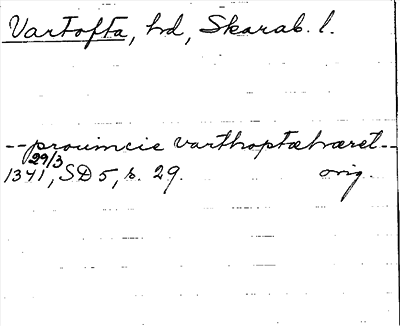 Vartofta, hd, Skarab. l.
-- prouincie varthoptæhæret --
29/3
1341, SD 5, s. 29. orig.